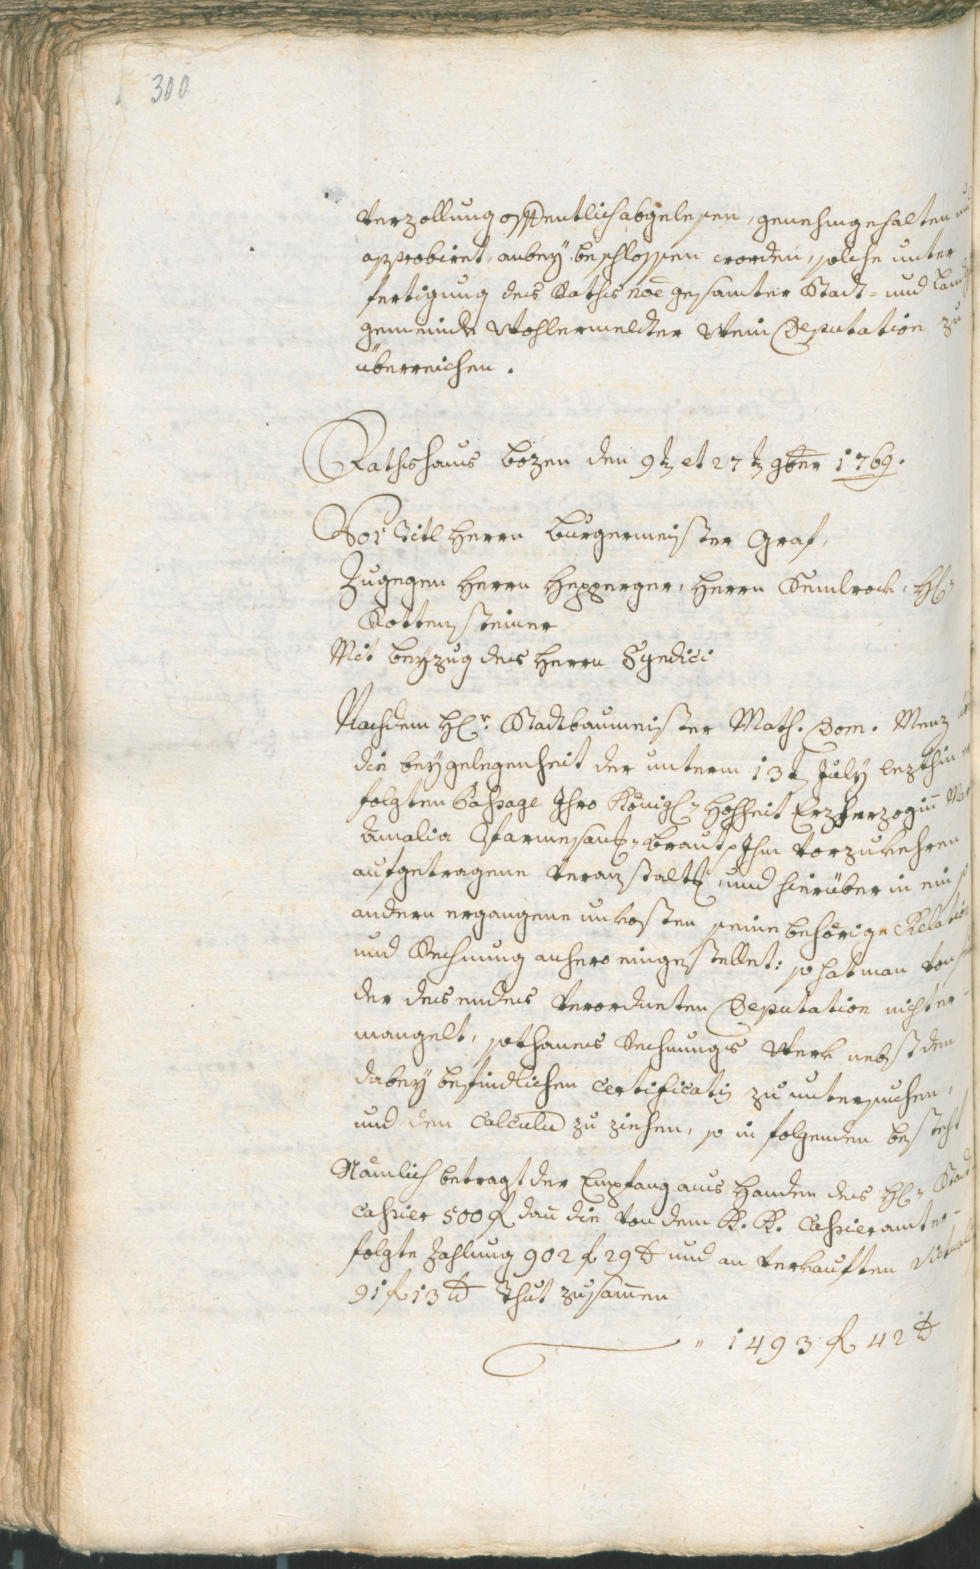 300
Verzollung offentlich abgelesen, genehmgehalten und
approbiret, anbey beschlossen worden, solche unter
fertigung des Raths noe gesamter Stadt- und Land
gemeinde Wohlermelter Wein Deputation zu
überreichen.
Rathshaus Bozen den 9t. et 27t. 9ber 1769.
Vor Titl Herrn Burgermeister Graf,
Zugegen Herrn Hepperger, Herrn Kemlrock, H.
Rottensteiner
Mit beyzug des Herrn Syndici
Nachdem H.r Stadtbaumeister Math. Dom. Menz
die bey gelegenheit der unterm 13t. July lezthin
folgten Passage Ihro Königl. Hoheit Erzherzogin
Amalia Parmesanis. Braut Ihm vorzukehren
aufgetragene Veranstalt, und hierüber in ein so
andern ergangene unkosten seine behörige Relation
und Rechnung anhero eingestellet: so hat man von
der des endes Verordneten Deputation nicht er-
mangelt, sothanes Rechnungs Werk nebst den
dabey befindlichen Certificatis zu untersuchen,
und den Calculu zu ziehen, so in folgenden besteht
Nämlich betragt der Empfang aus Handen des H. Stadt
Cassier 500 f dan die von dem K. K. Cassieramt er-
folgte Zahlung 902 f 29 d und an Verkauften Victual
91 f 13 d Thut zusamen
" 1493 f 42 d